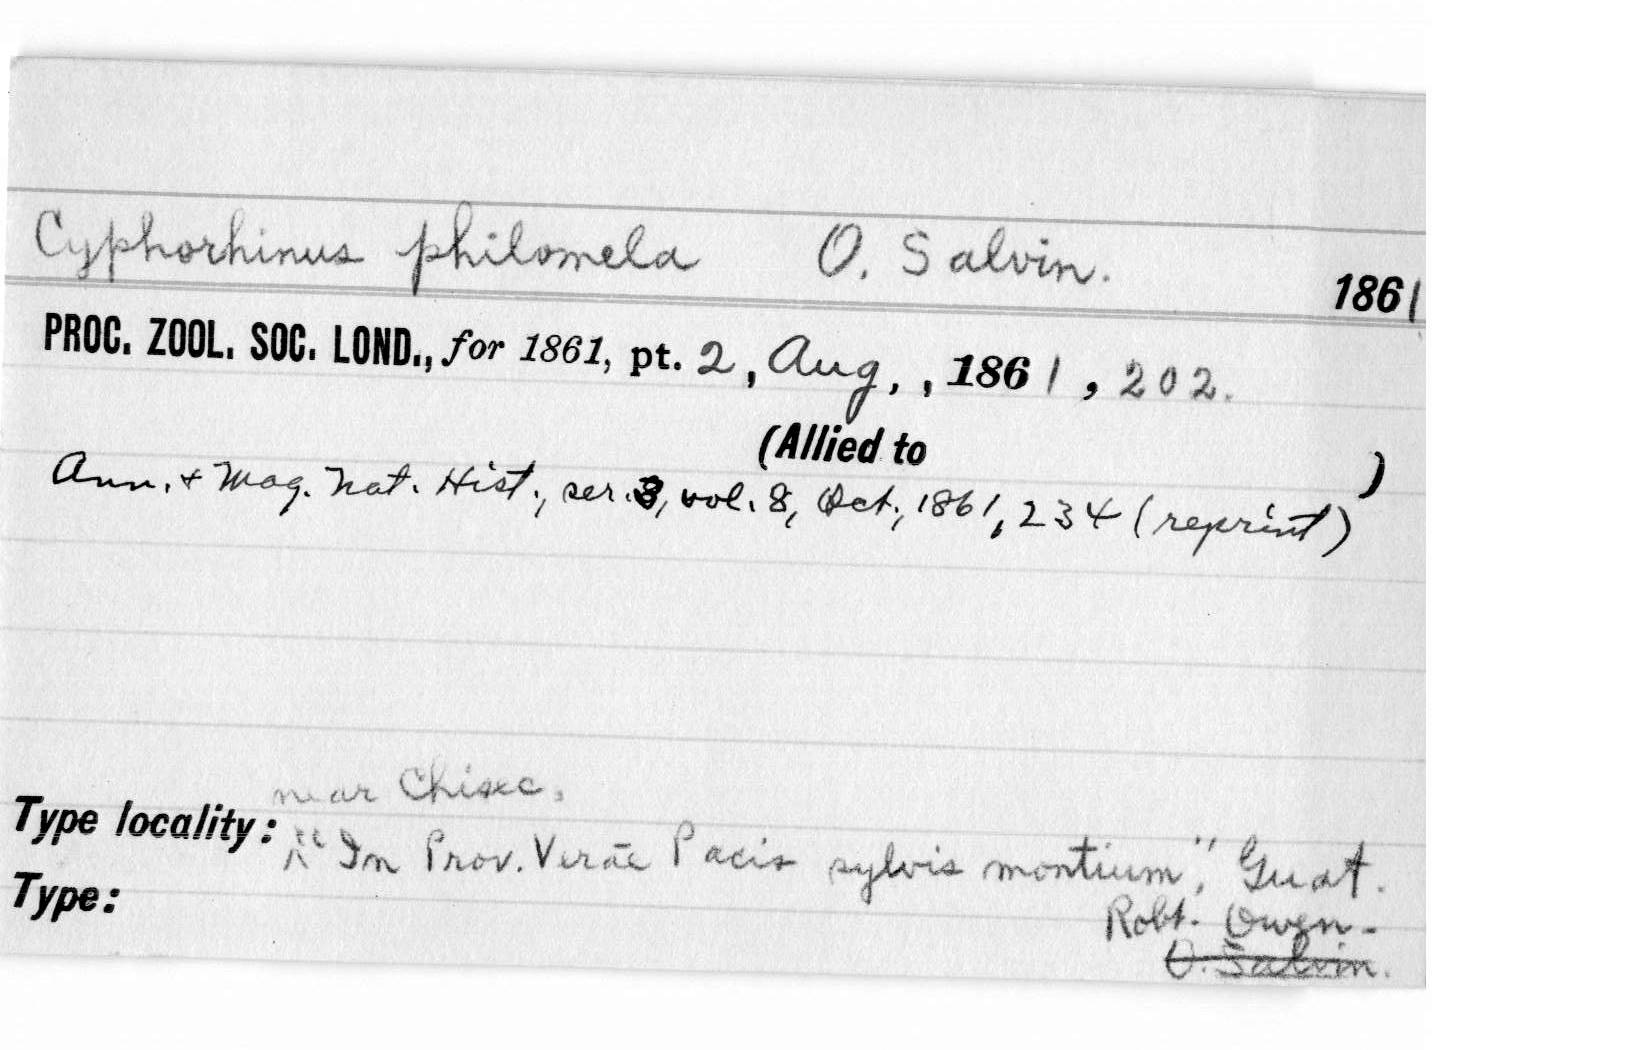 Cyphorhinus philomela O. Salvin.
1861
PROC. ZOOL. SOC. LOND., for 1861, pt. 2, Aug., , 1861, 202.
(Allied to )
Ann. + Mag. Nat. Hist., ser. 3, vol. 8, Oct., 1861, 234 (reprint)
near Chisec,
Type locality: "In Prov. Verae Pacis sylvis montium", Guat.
Type:
Robt. Owen.
O. Salvin.